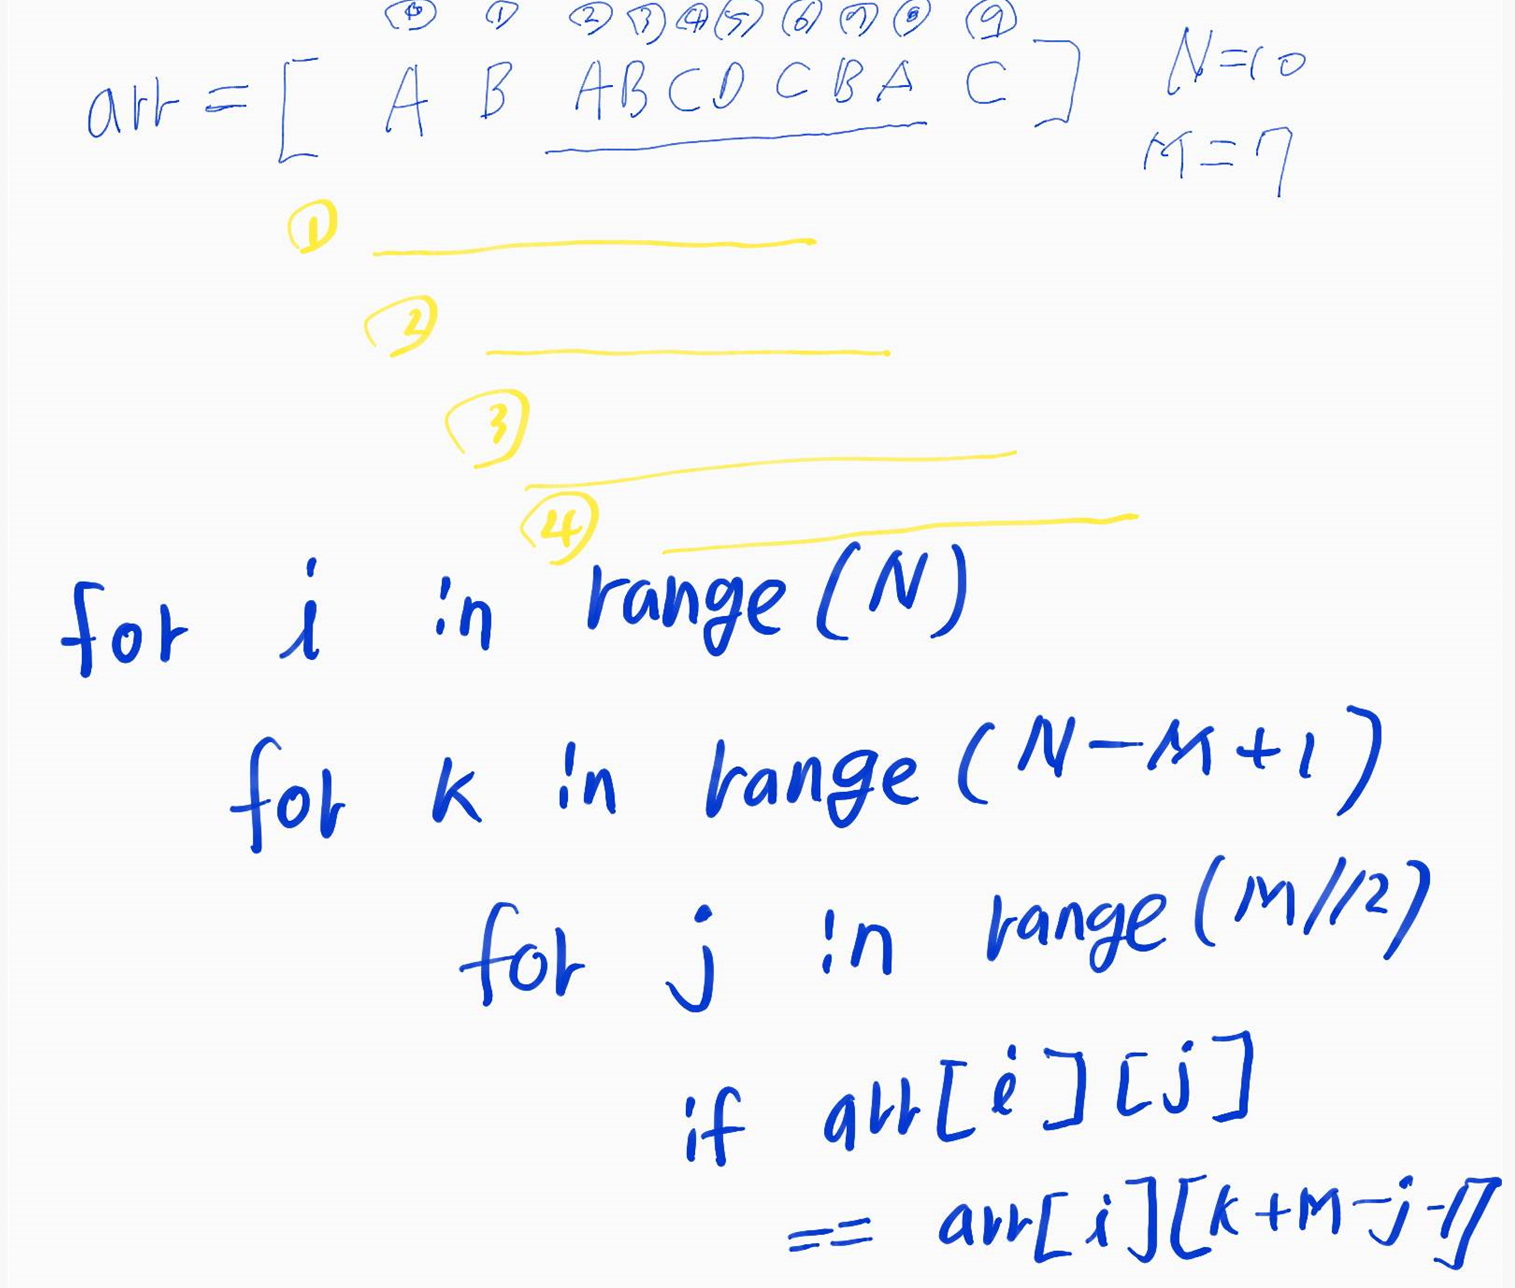 ⓪ ① ② ③ ④ ⑤ ⑥ ⑦ ⑧ ⑨
arr = [ A B A B C D C B A C ] N=10
M=7
①
②
③
④
for i in range (N)
for k in range ( N-M+1 )
for j in range (M//2)
if arr[i][j]
== arr[i][k+M-j-1]